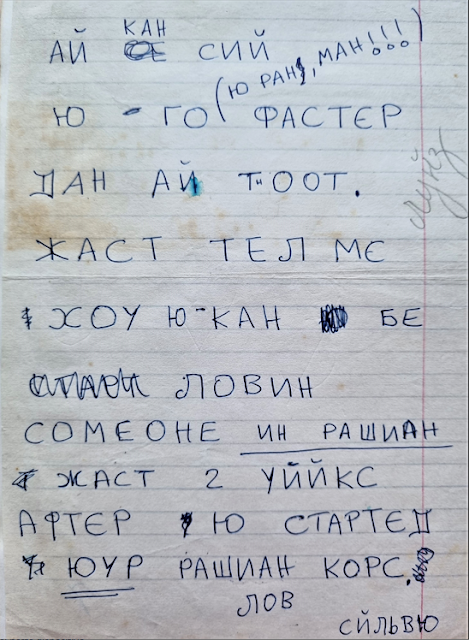 КАН
АЙ СИЙ
(Ю РАН, МАН!!!)
Ю - ГО ФАСТЕР
ДАН АЙ ТООТ.
ЖАСТ ТЕЛ МЄ
ХОУ Ю-КАН БЕ
ЛОВИН
СОМЕОНЕ ИН РАШИАН
ЖАСТ 2 УЙЙКС
АФТЕР Ю СТАРТЕД
ЮУР РАШИАН КОРС.
ЛОВ
СЙЛЬВЮ